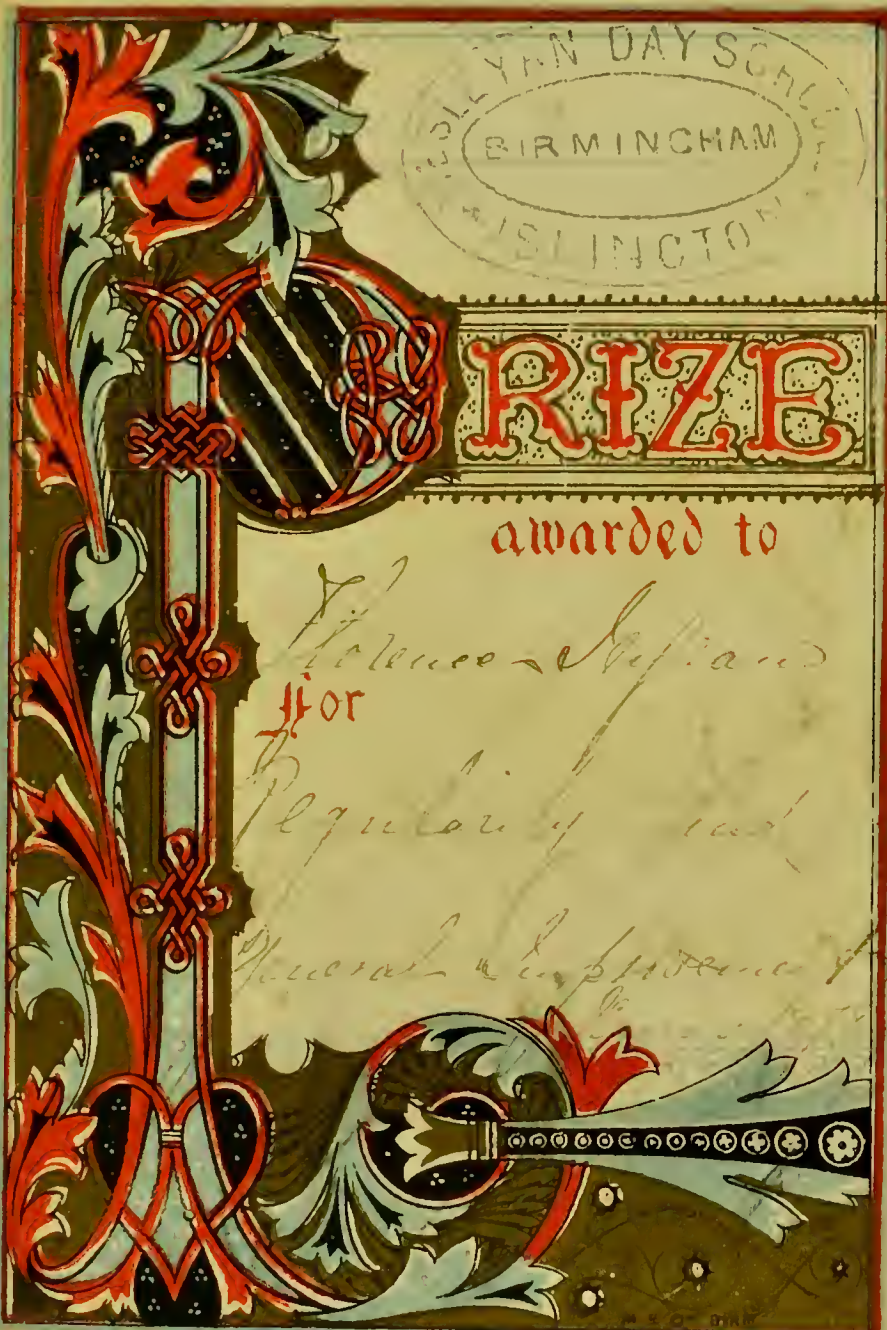 WESLEYAN DAY SCHOOL
BIRMINGHAM
ISLINGTON
PRIZE
awarded to
Florence
For
Regularity and
General Improvement
BIRM